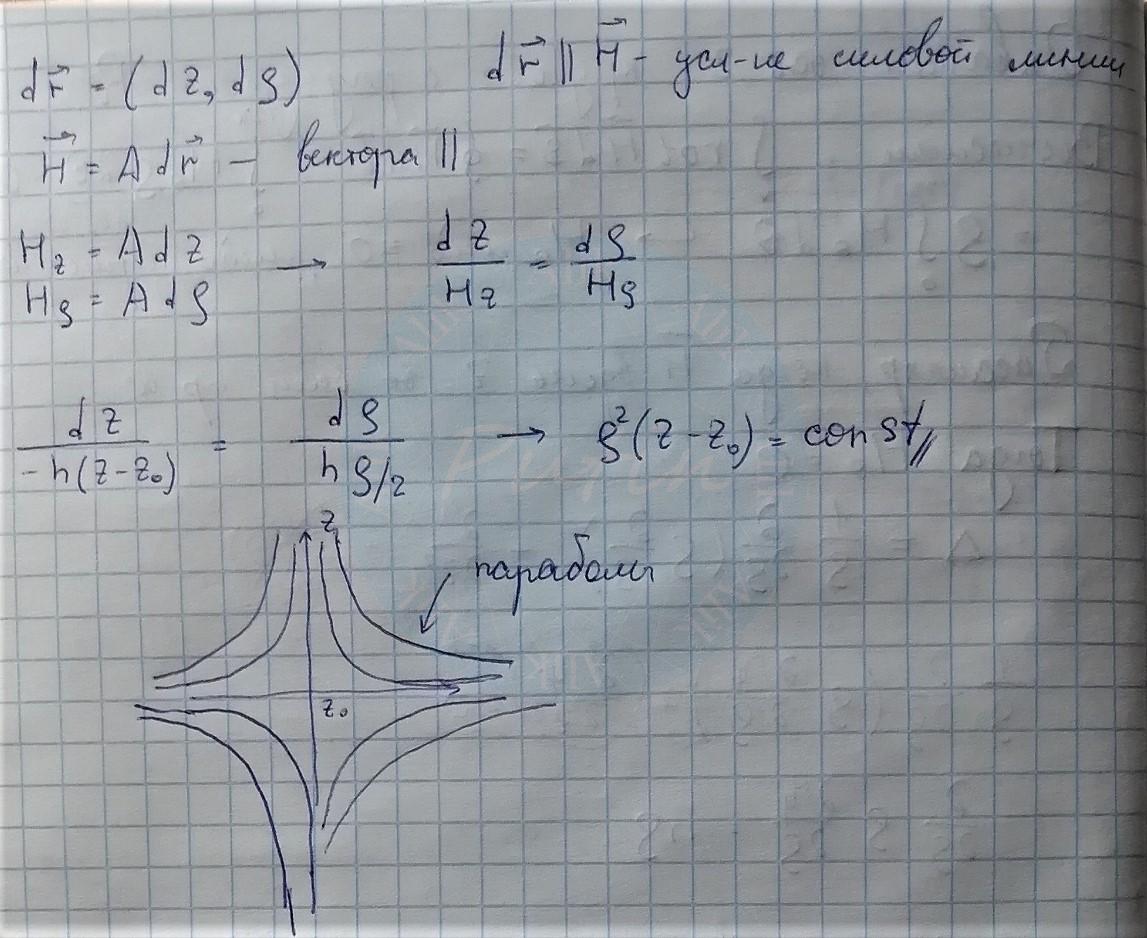 dr⃗ = (dz, dρ) dr⃗ || H⃗ - усл-ие силовой линии
H⃗ = A dr⃗ — вектора ||
H_z = A dz
H_ρ = A dρ → dz/H_z = dρ/H_ρ
dz/(-h(z-z₀)) = dρ/(hρ/2) → ρ²(z-z₀) = const //
z
параболы
z₀